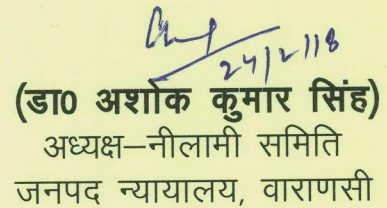 24/2/18
(डा0 अशोक कुमार सिंह)
अध्यक्ष–नीलामी समिति
जनपद न्यायालय, वाराणसी